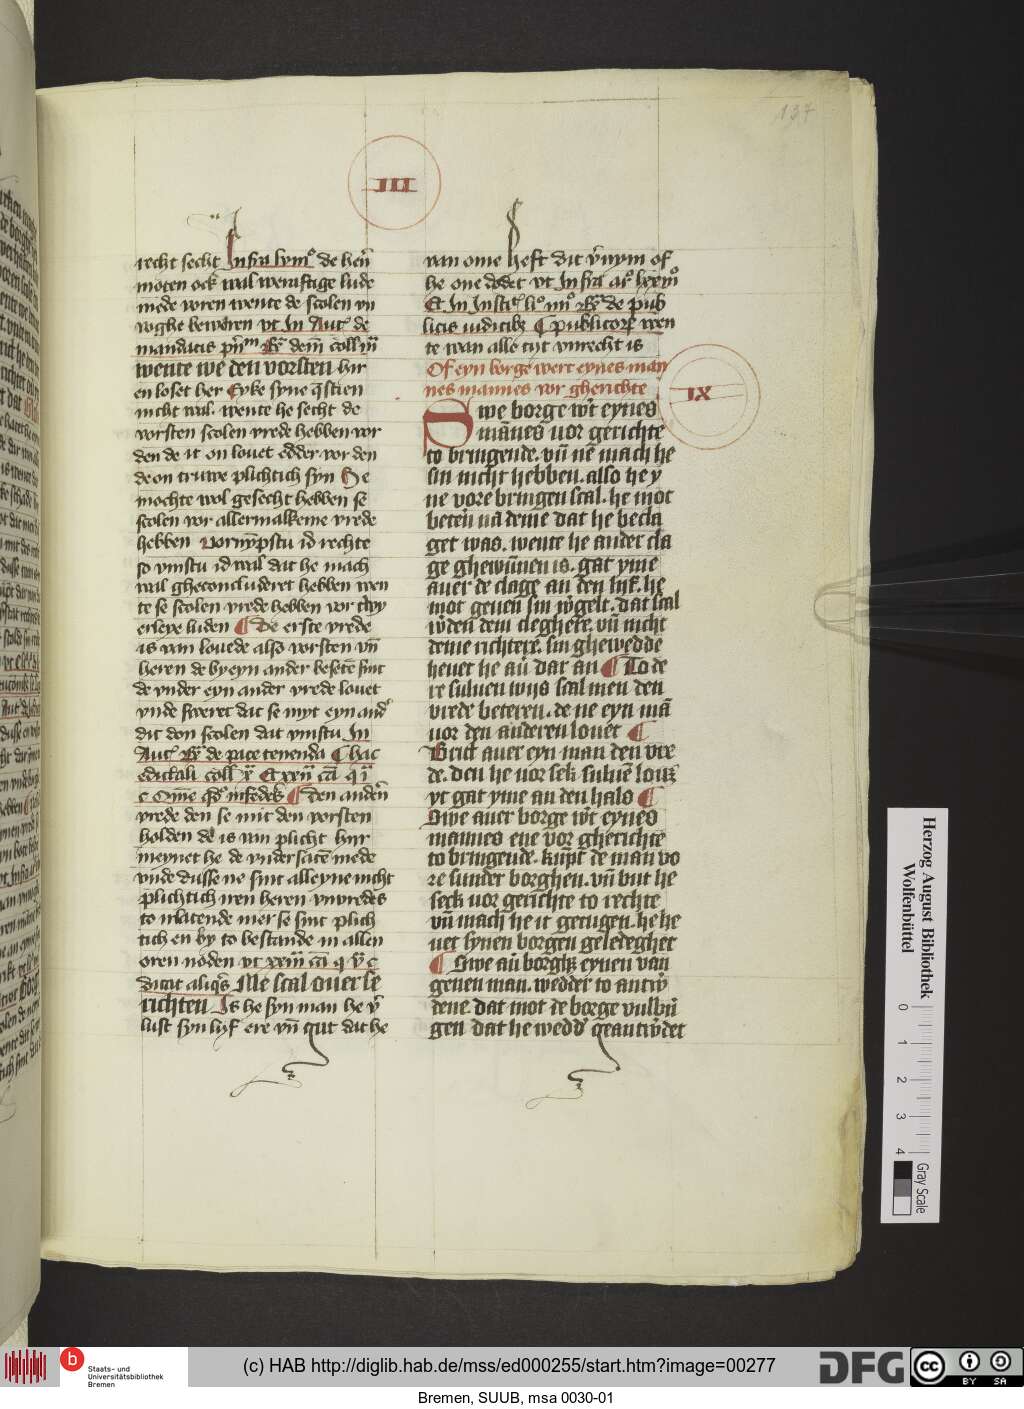 137
III
recht secht Infra lymꝰ de herñ
moten ock wal weraftige lude
mede voren wente de scolen vn
vogke beweren vt In Autͨ de
mandatis pñ ꝶ dem̄ coll
wente we den vorsten hir
en loset her Eyke syne q̄stien
nicht wil. wente he secht de
vorsten scolen vrede hebben vor
den de it on louet edder vor den
de on truwe plichtich syn He
mochte wol gesecht hebben se
scolen vor allermalkeme vrede
hebben vornȳpstu id rechte
so vinstu id wil dat he mach
wil gheconcluderet hebben wen
te se scolen vrede hebben vor
erleye luden ¶ De erste vrede
is van louede alzo vorsten vn̄
heren de byeyn ander besetē sint
de vnder eyn ander vrede louet
vnde sweret dat se myt eyn andʼ
dit don scolen dat vinstu In
Autͨ ꝶ de pace tenenda ¶ hac
edictali coll
¶ Den andeñ
vrede den se mit den vorsten
holden de is van plicht hir
meynet he de vndersatē mede
vnde dusse ne sint alleyne nicht
plichtich oren heren vnvredes
to nlatende mer se sint plich
tich en by to bestande in allen
oren nöden vt
dicat aliq̄s Me scal ouer se
richten Is he syn man he v̄
lust syn lyf ere vn̄ gut dat he
van ome heft dit v̄nym of
he one dodet vt Infra
Et In Instiͭ ꝶ de pub
licis iudiciis ¶ publicorꝝ wen
te wan alle tyt vnrecht is
Of eyn borge wert eynes man
nes mannes vor gherichte
IX
Swe borge w̄t eynes
mānes uor gerichte
to bringende. vn̄ ne mach he
sin nicht hebben. also he y
ne vore bringen scal. he mot
beteñ nā deme dat he becla
get was. wente he an der cla
ge ghewūnen is. gat yme
auer de clage an den lif. he
mot geuen sin w̄gelt. dat scal
w̄den dem cleghere. vn̄ nicht
deme richtere. sin ghewedde
heuet he au̅ dar an ¶ To de
re suluen wijs scal men den
vrede beteren. de ne eyn mā
uor den anderen louet ¶
Brict auer eyn man den vre
de. den he uor sek suluē louꝫ
yt gat yme an den hals ¶
Swe auer borge w̄t eynes
mannes ene vor gherichte
to bringende. kūpt de man vo
re sunder borghen. vn̄ but he
seck uor gerichte to rechte
vn̄ mach he it getugen. he he
uet synen borgen geledeghet
¶ Swe au̅ borghꝫ eynen van
geuen man. wedder to antw̄
dene. dat mot de borge vulbrī
gen. dat he wedd' geantw̄det
Herzog August Bibliothek
Wolfenbüttel
0 1 2 3 4
Gray Scale
b Staats- und
Universitätsbibliothek
Bremen
(c) HAB http://diglib.hab.de/mss/ed000255/start.htm?image=00277
DFG
cc BY SA
Bremen, SUUB, msa 0030-01